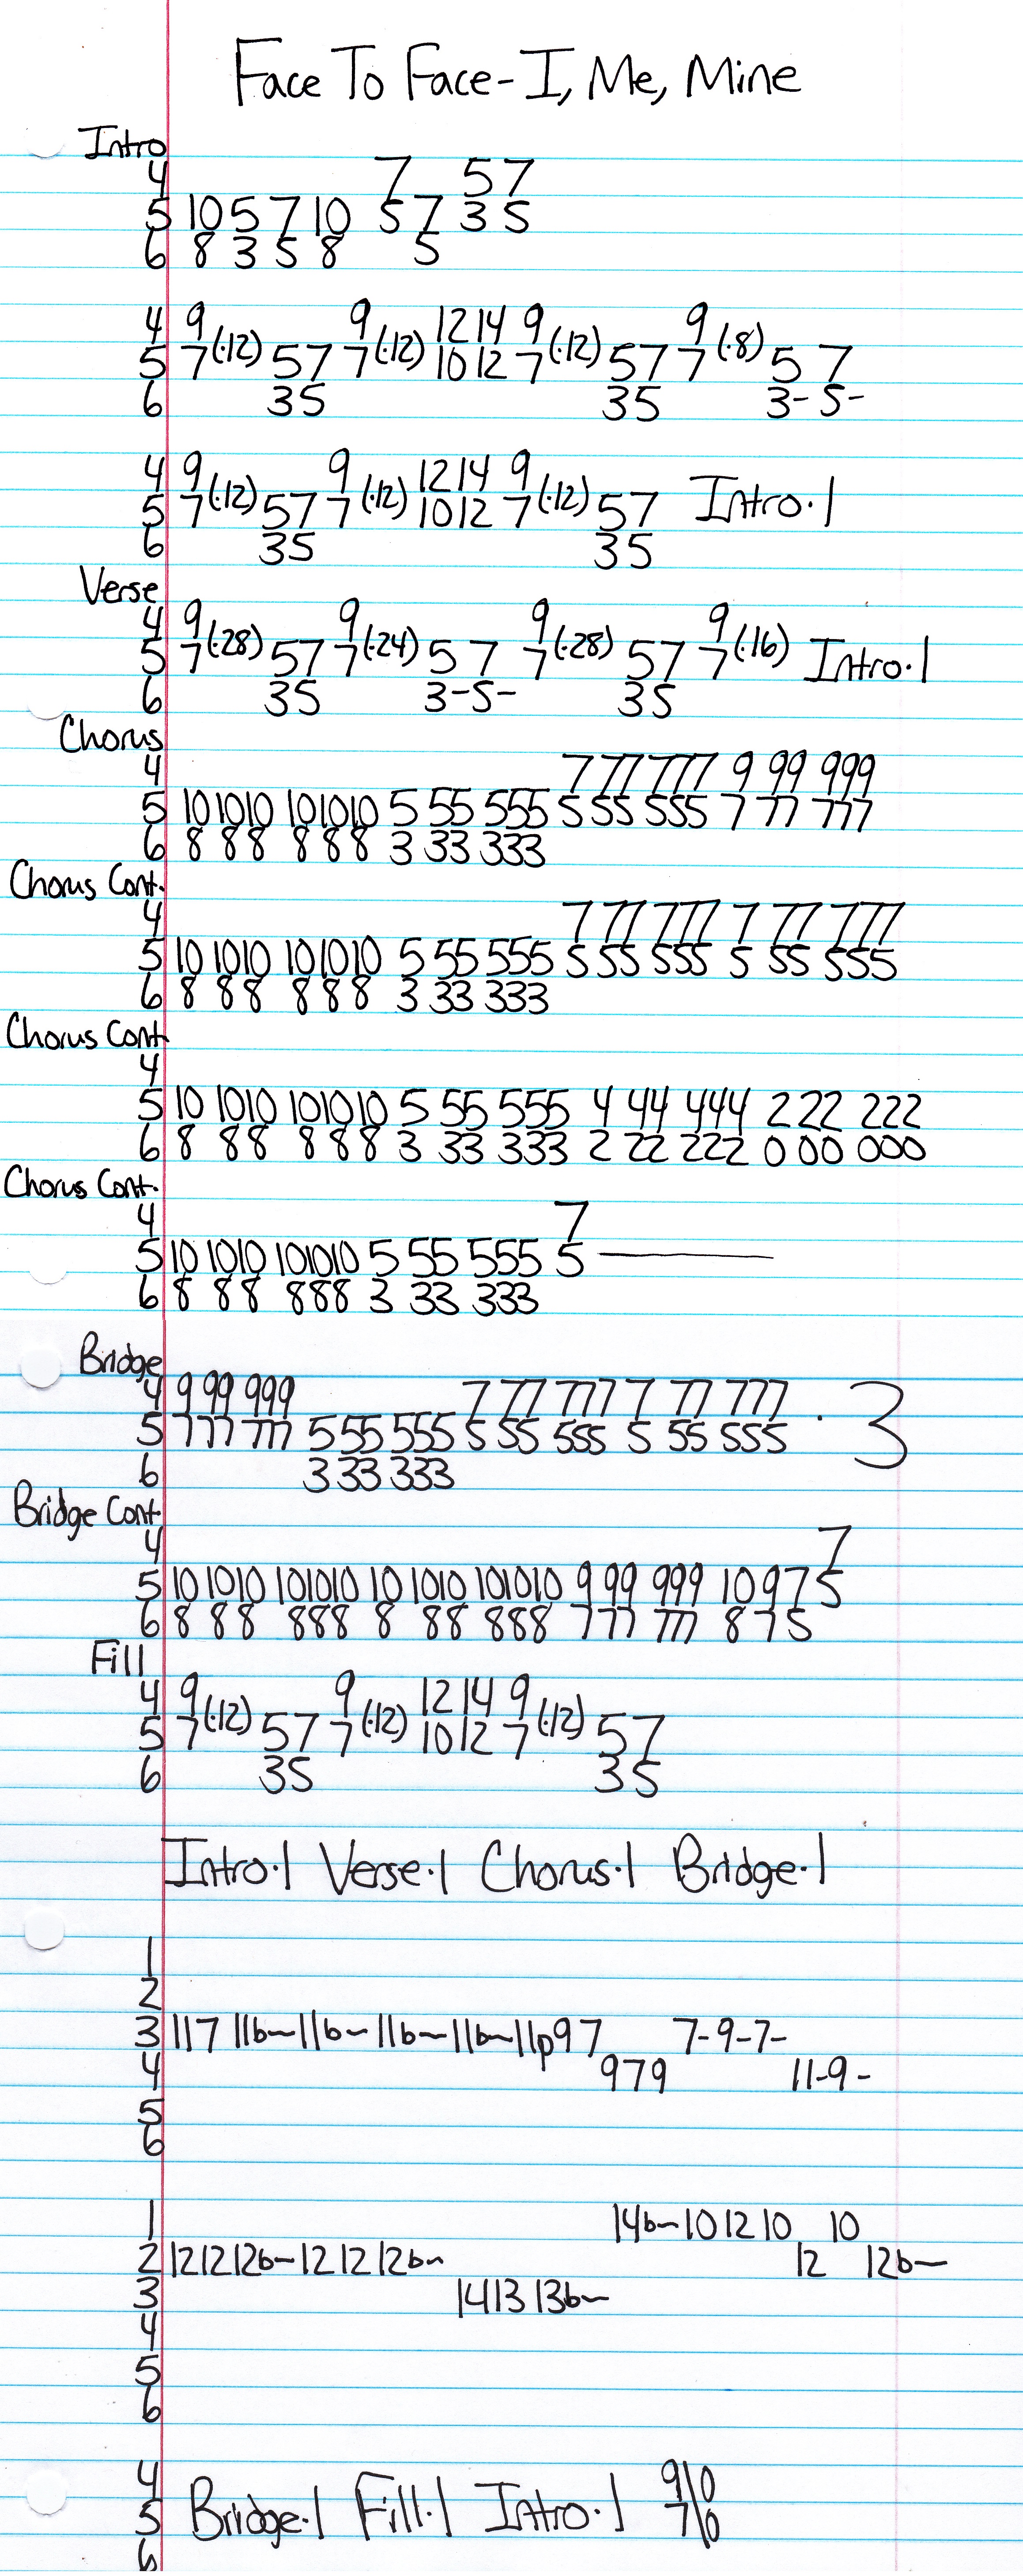 Face To Face - I, Me, Mine
Intro
4 7 5 7
5 10 5 7 10 5 7 3 5
6 8 3 5 8 5
4 9 9 12 14 9 9
5 7 (·12) 5 7 7 (·12) 10 12 7 (·12) 5 7 7 (·8) 5 7
6 3 5 3 5 3- 5-
4 9 9 12 14 9
5 7 (·12) 5 7 7 (·12) 10 12 7 (·12) 5 7 Intro·1
6 3 5 3 5
Verse
4 9 9 9 9
5 7 (·28) 5 7 7 (·24) 5 7 7 (·28) 5 7 7 (·16) Intro·1
6 3 5 3-5- 3 5
Chorus
4 7 77 777 9 99 999
5 10 1010 101010 5 55 555 5 55 555 7 77 777
6 8 88 888 3 33 333
Chorus Cont.
4 7 77 777 7 77 777
5 10 1010 101010 5 55 555 5 55 555 5 55 555
6 8 88 888 3 33 333
Chorus Cont.
4
5 10 1010 101010 5 55 555 4 44 444 2 22 222
6 8 88 888 3 33 333 2 22 222 0 00 000
Chorus Cont.
4 7
5 10 1010 101010 5 55 555 5 ———
6 8 88 888 3 33 333
Bridge
4 9 99 999 7 77 777 7 77 777
5 7 77 777 5 55 555 5 55 555 5 55 555 · 3
6 3 33 333
Bridge Cont.
4 7
5 10 1010 101010 10 1010 101010 9 99 999 10 9 7 5
6 8 88 888 8 88 888 7 77 777 8 7 5
Fill
4 9 9 12 14 9
5 7 (·12) 5 7 7 (·12) 10 12 7 (·12) 5 7
6 3 5 3 5
Intro·1 Verse·1 Chorus·1 Bridge·1
1
2
3 11 7 11b~ 11b~ 11b~ 11b~ 11p9 7 7-9-7-
4 9 7 9 11-9-
5
6
1 14b~ 10 12 10 10
2 12 12 12b~ 12 12 12b~ 12 12b~
3 14 13 13b~
4
5
6
4 9\0
5 Bridge·1 Fill·1 Intro·1 7\0
6